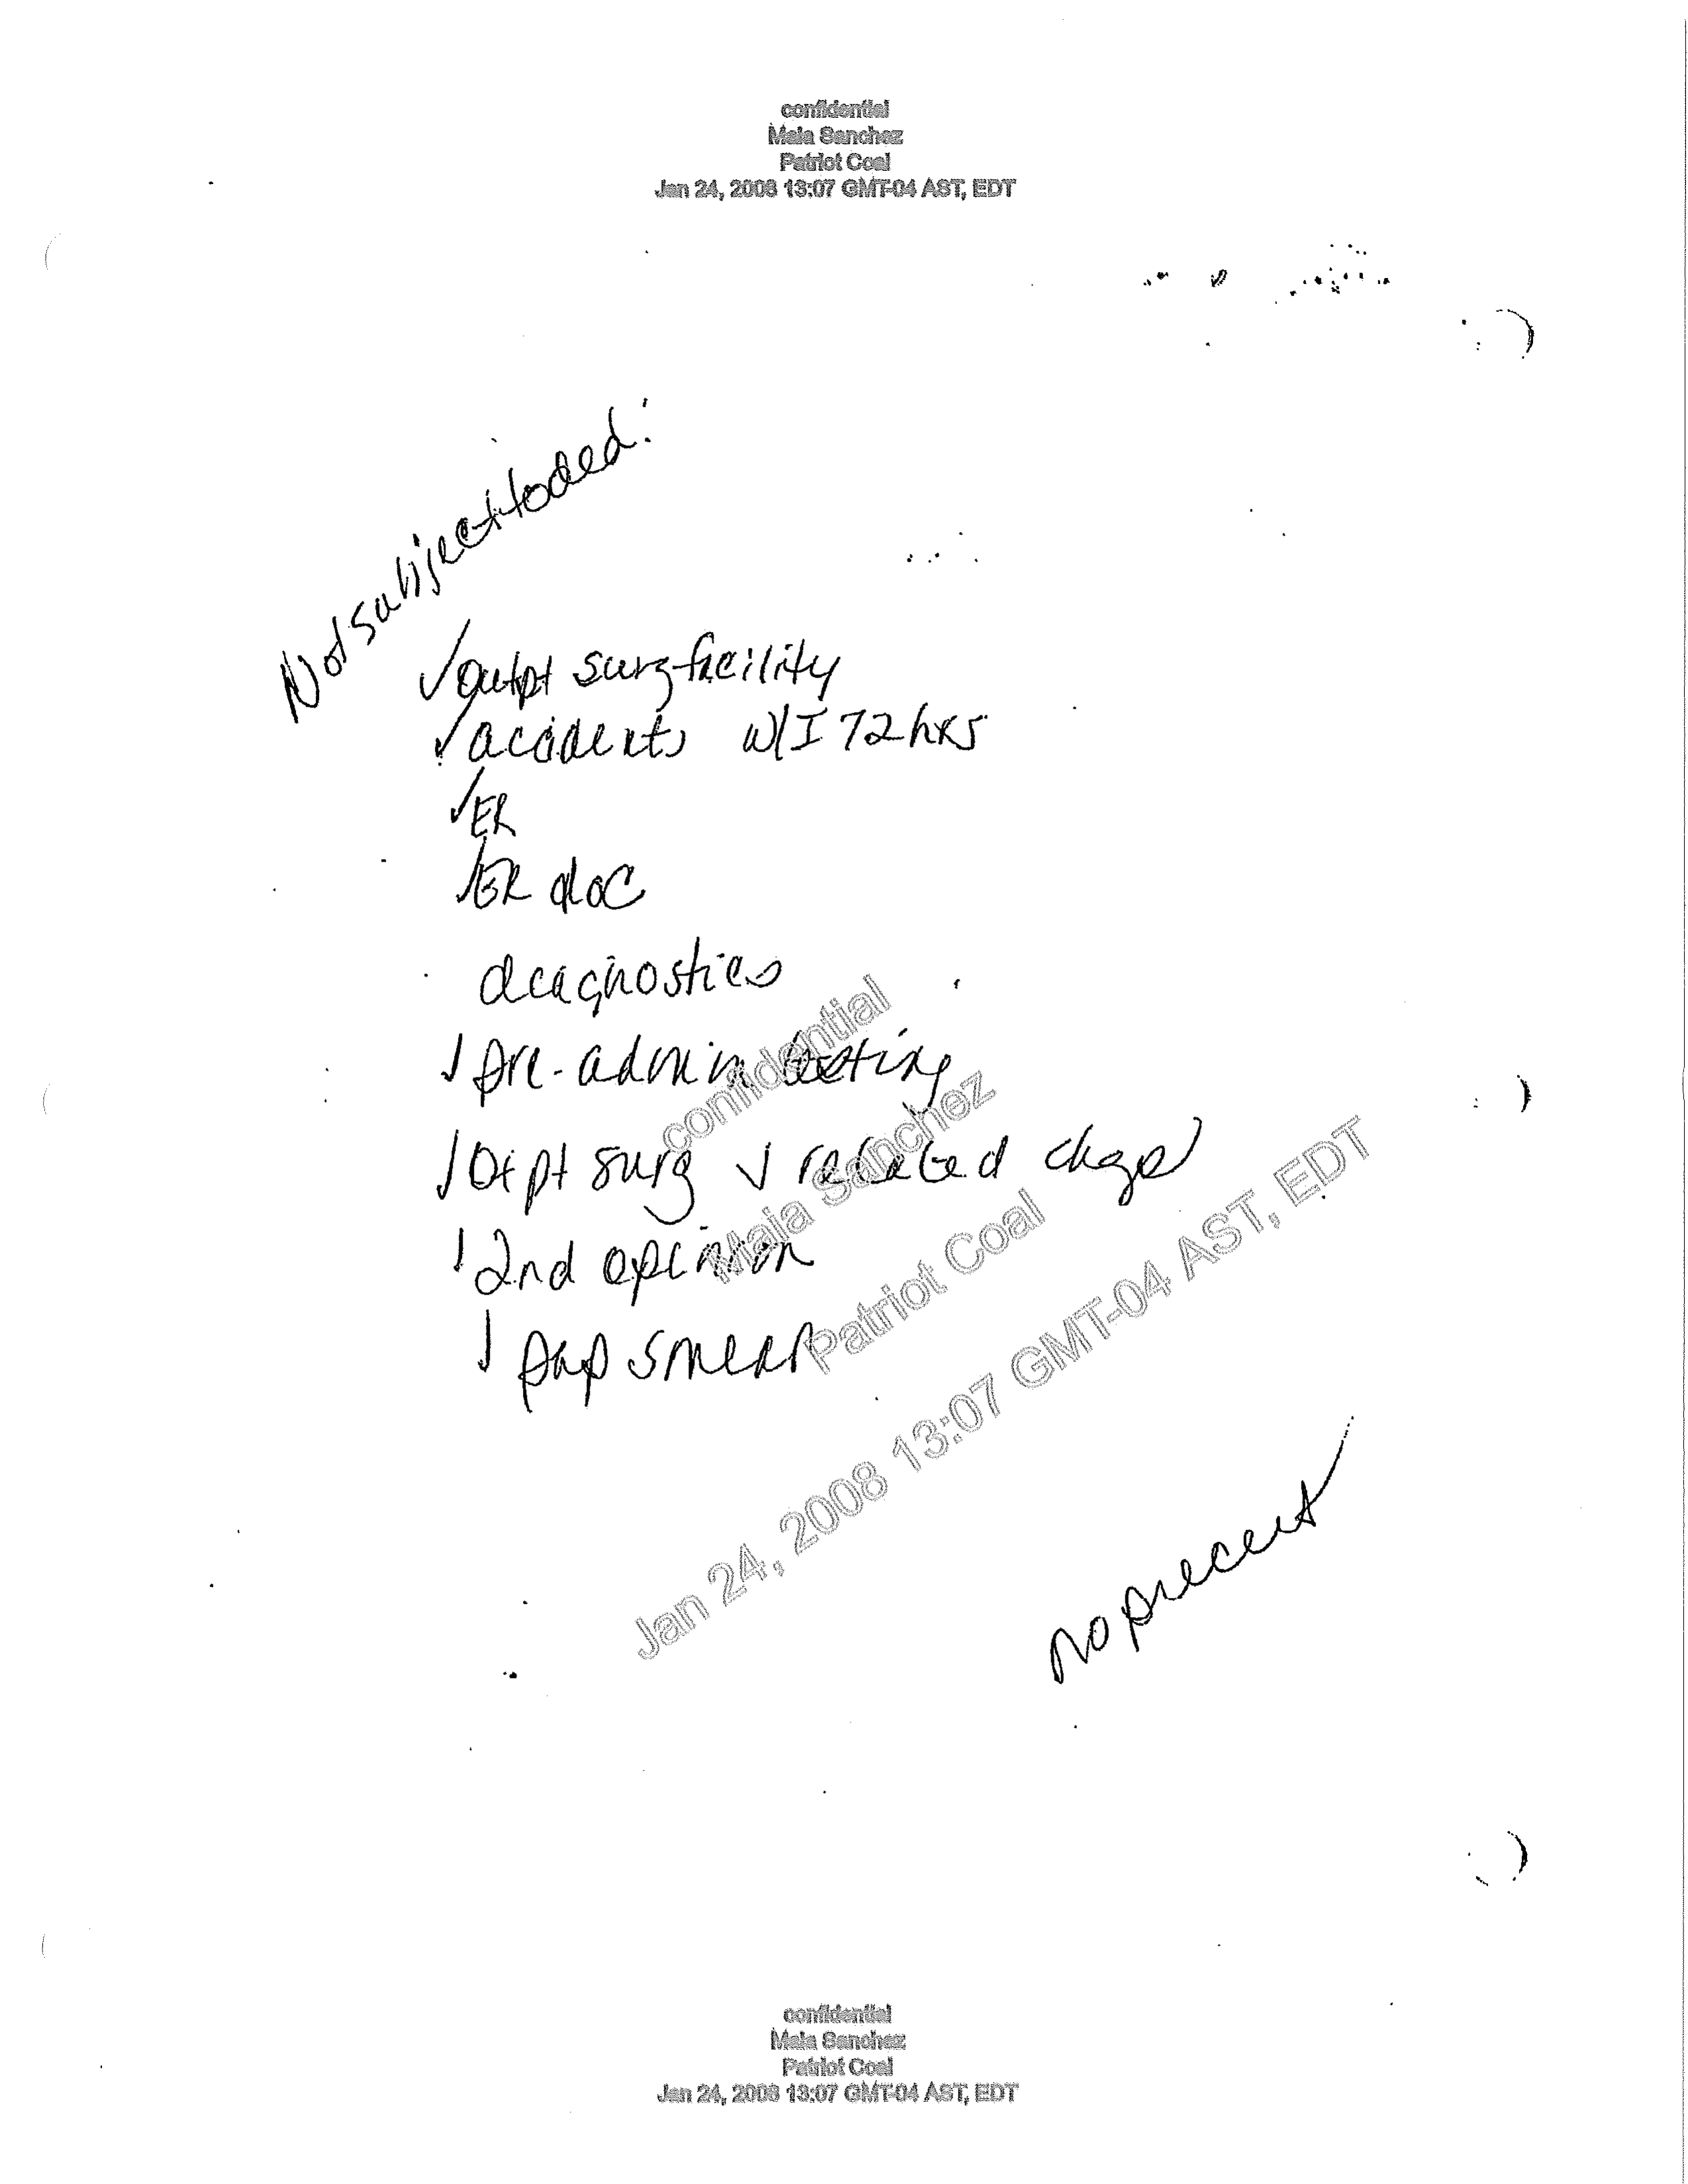 confidential
Maia Sanchez
Patriot Coal
Jan 24, 2008 13:07 GMT-04 AST, EDT
Not subject to ded:
✓ outpt surg facility
✓ accidents w/I 72 hrs
✓ ER
✓ ER doc
diagnostics
✓ pre-admin testing
✓ Otpt surg ✓ related chgs
✓ 2nd opinion
✓ pap smear
confidential
Maia Sanchez
Patriot Coal
Jan 24, 2008 13:07 GMT-04 AST, EDT
no precert
confidential
Maia Sanchez
Patriot Coal
Jan 24, 2008 13:07 GMT-04 AST, EDT